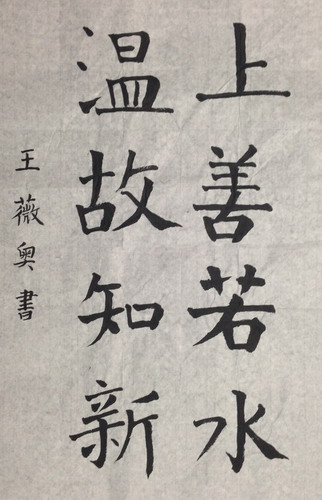 上善若水
温故知新
王薇奥書